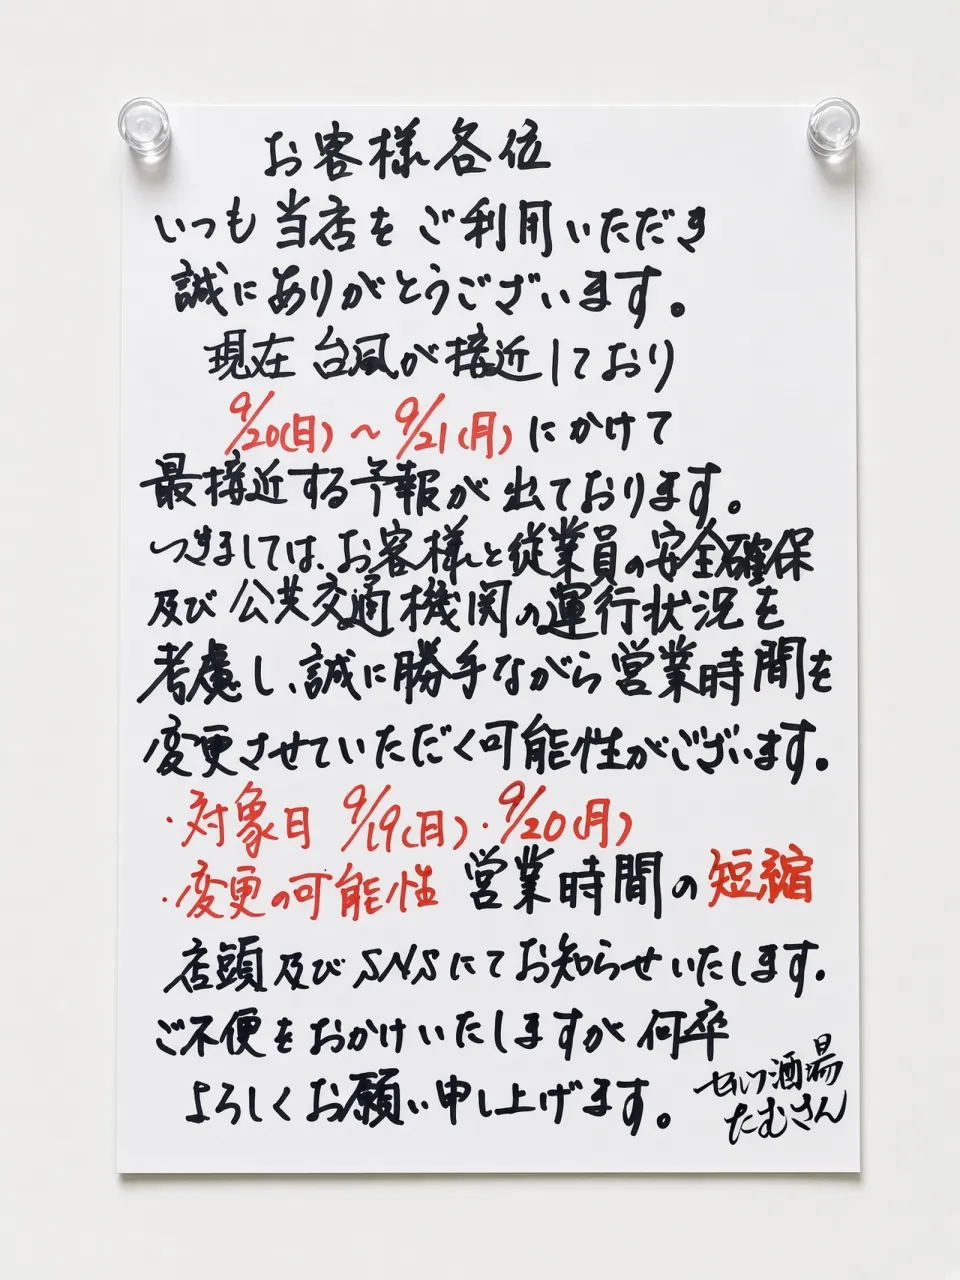 お客様各位
いつも当店をご利用いただき
誠にありがとうございます。
現在台風が接近しており
9/20(日)～9/21(月)にかけて
最接近する予報が出ております。
つきましては、お客様と従業員の安全確保
及び公共交通機関の運行状況を
考慮し、誠に勝手ながら営業時間を
変更させていただく可能性がございます。
・対象日 9/19(日)・9/20(月)
・変更の可能性 営業時間の短縮
店頭及びSNSにてお知らせいたします。
ご不便をおかけいたしますが何卒
よろしくお願い申し上げます。
セルフ酒場
たむさん